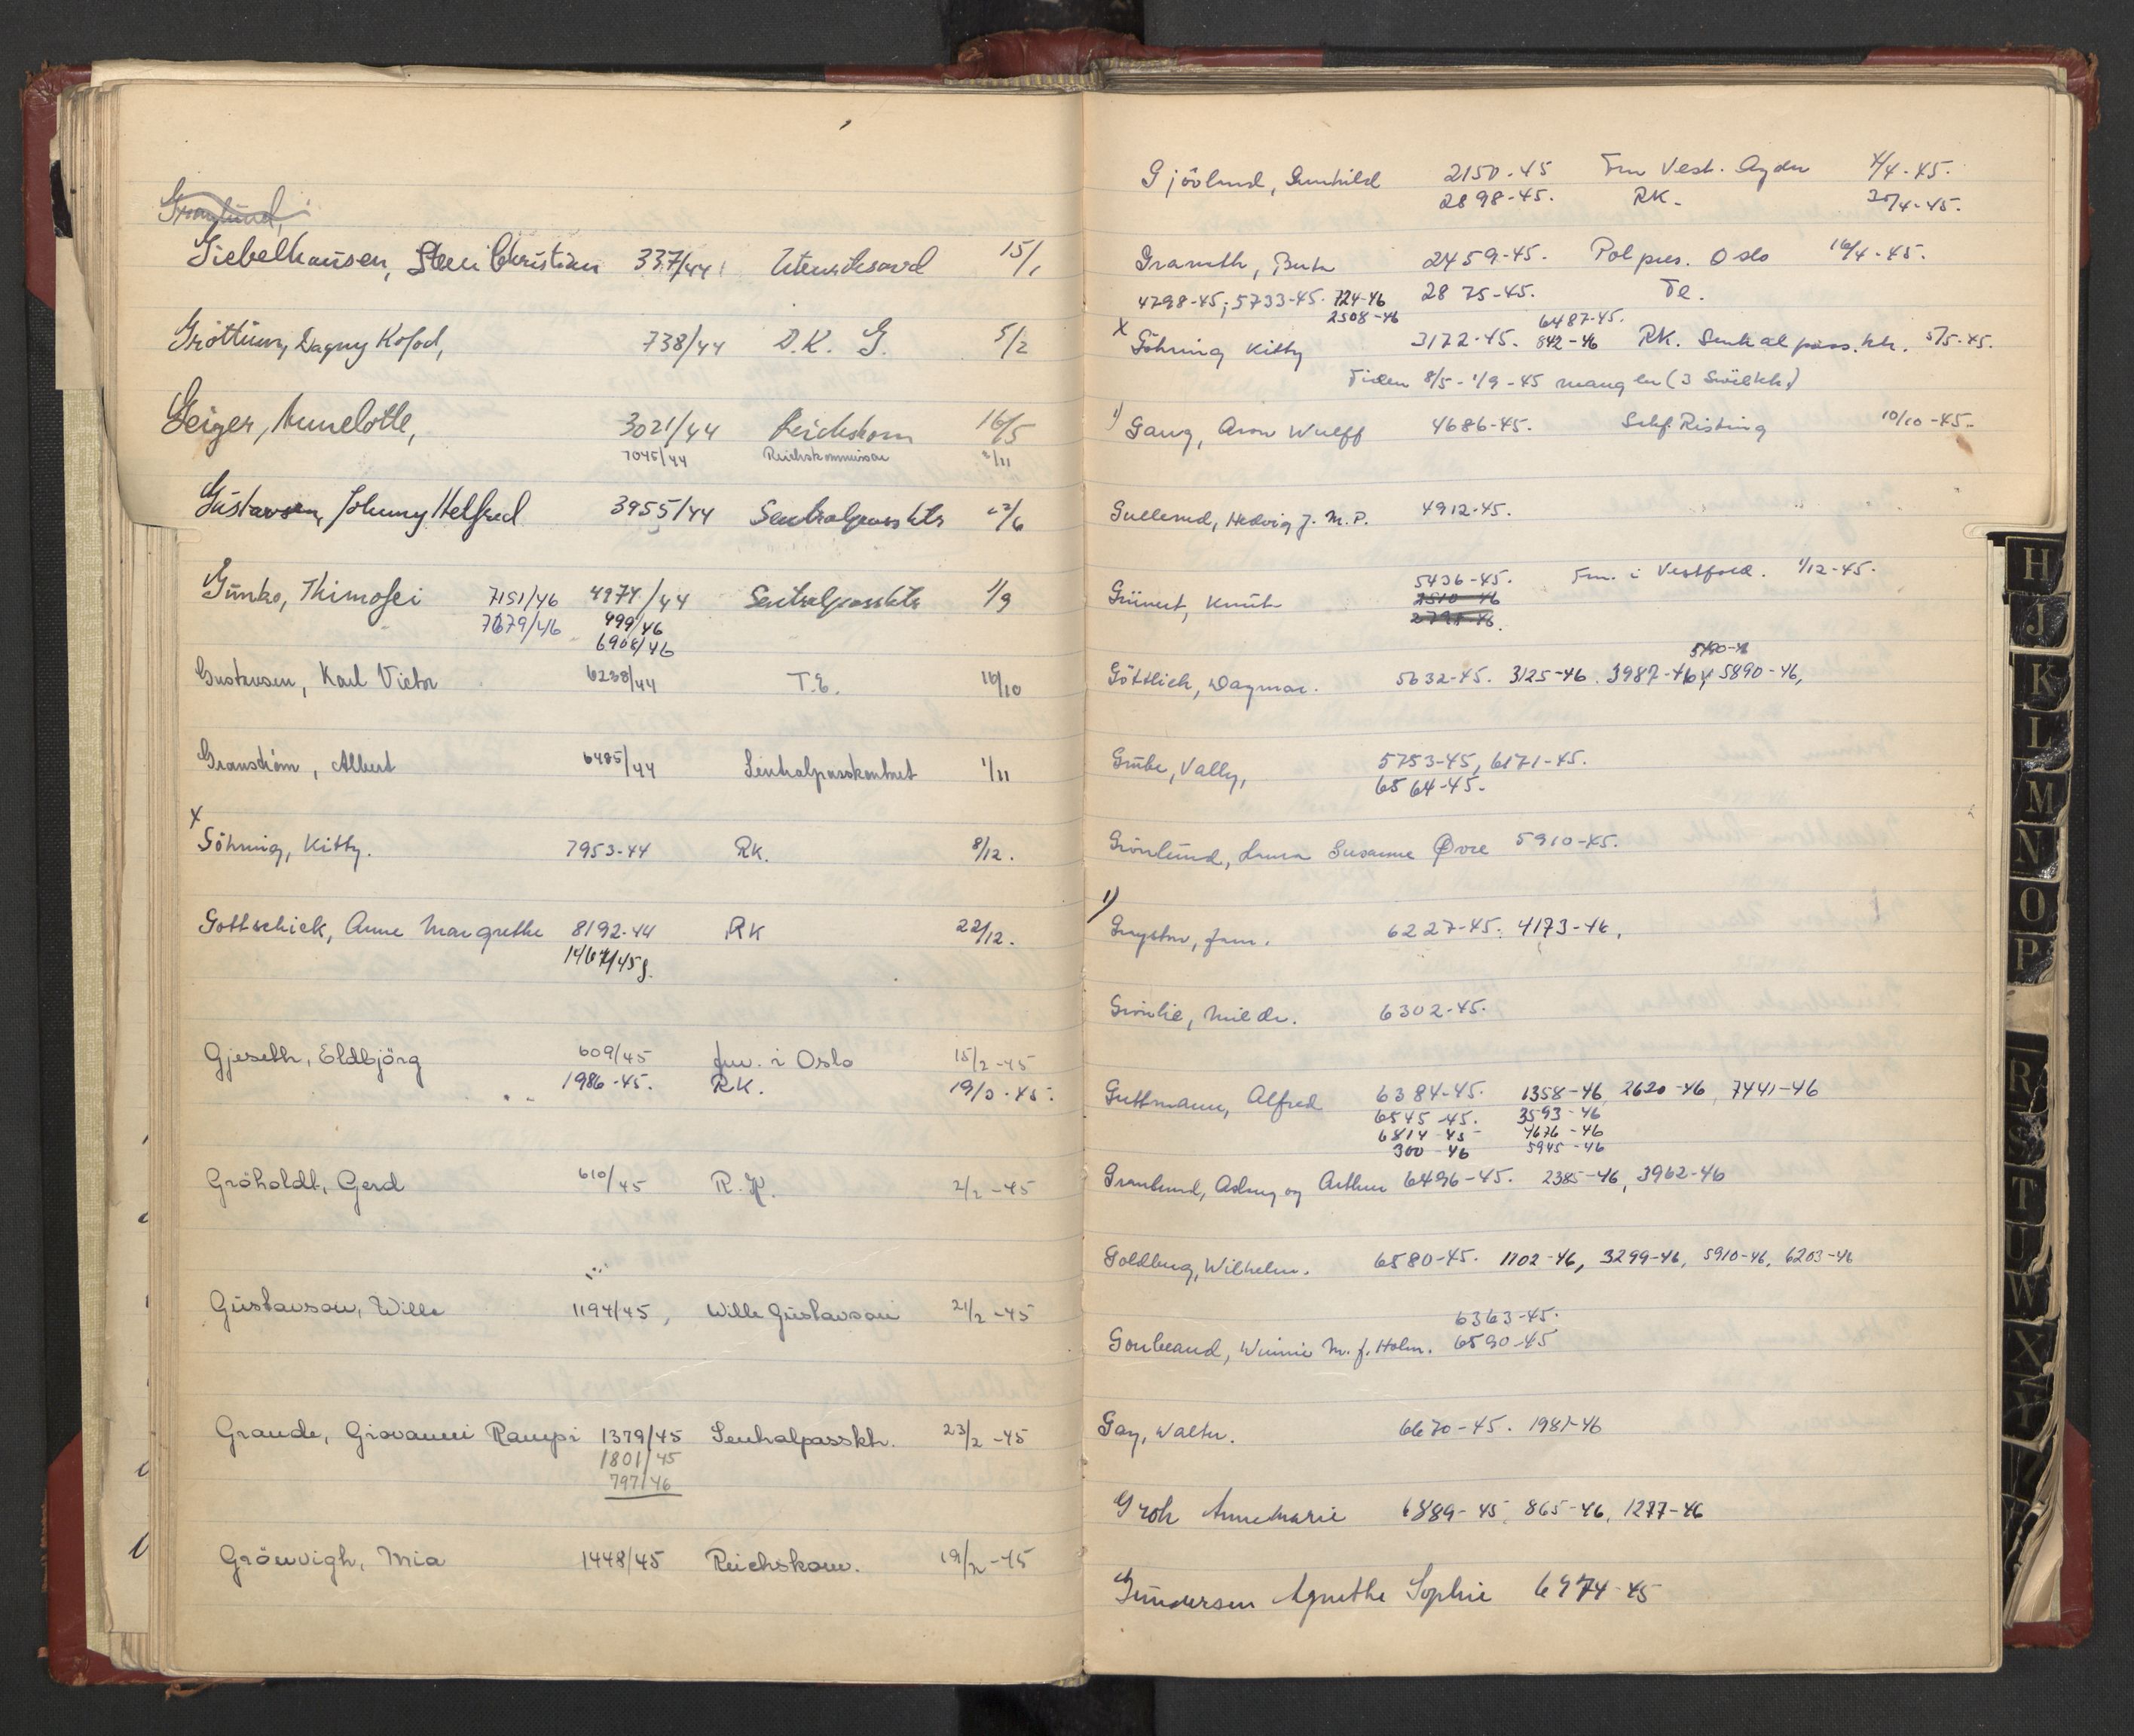 Giebelhausen, Christian 337/44 15/1
Dagny Kofod, 738/44 D.K. G. 5/2
Geiger, Annelotte, 3021/44 Reichskom 16/5
7045/44 Reichskommissar /11
Gustavsen, Johnny Helfred 3955/44 Sentralpasskts
Gunko, Thimofei 7151/46 4974/44 Sentralpasskts 1/9
7679/46 499/46
6908/46
Gustavsen, Karl Victor 6238/44 T.E. 16/10
Granström, Albert 6485/44 Sentralpasskontoret 1/11
x
Göhring, Kitty. 7953-44 RK. 8/12.
Gottschick, Anne Margrethe 8192-44 RK 22/12.
1467/45
Gjeseth, Eldbjörg 609/45 fm. i Oslo 15/2-45
1986-45. RK. 19/3-45.
Gröholdt, Gerd 610/45 R.K. 2/2-45
Gustavson, Wille 1194/45, Wille Gustavson 21/2-45
Grande, Giovanni Rampi 1379/45 Sentralpasskt. 23/2-45
1801/45
797/46
Grönvigh, Mia 1448/45 Reichskom. 19/2-45
Gjövlund, Gunhild 2150-45 Fm Vest. Agder 4/4-45.
2898-45. RK. 25/4-45.
2459-45. Pol pres. Oslo 16/4-45.
4798-45; 5733-45. 724-46 2875-45. Te.
2508-46 6487-45.
x Göhring Kitty 3172-45. 842-46 RK. Sentralpass.kt. 5/5-45.
Tiden 8/5-1/9-45 mangler
1) Gang, Aron Wulff 4686-45. Schf. Risting 10/10-45.
Gullerud, Hedvig J. M. P. 4912-45.
5436-45. Fm. i Vestfold. 1/12-45.
Grünert, Knut 2510-46
5190-46
Göttlich, Dagmar. 5632-45. 3125-46. 3987-46, 5890-46,
Grube, Vally, 5753-45, 6171-45.
6564-45.
Grönlund, Laura Susanne Øvre 5910-45.
1)
6227-45. 4173-46.
Grönlie, 6302-45.
Guttmann, Alfred 6384-45. 1358-46, 2620-46, 7441-46
6545-45. 3593-46
6814-45 4676-46
300-46 5945-46
Granlund, Aslaug og Arthur 6496-45. 2385-46, 3962-46
Goldberg, Wilhelm. 6580-45. 1102-46, 3299-46, 5910-46, 6203-46
6363-45.
Goubeaud, Winnie M. f. Holm. 6590-45
Gay, Walter. 6670-45. 1981-46
Groh Annemarie 6889-45, 865-46, 1277-46
Gundersen Agnethe Sophie 6974-45
H
J
K
L
M
N
O
P
R
S
T
U
W
X
Y